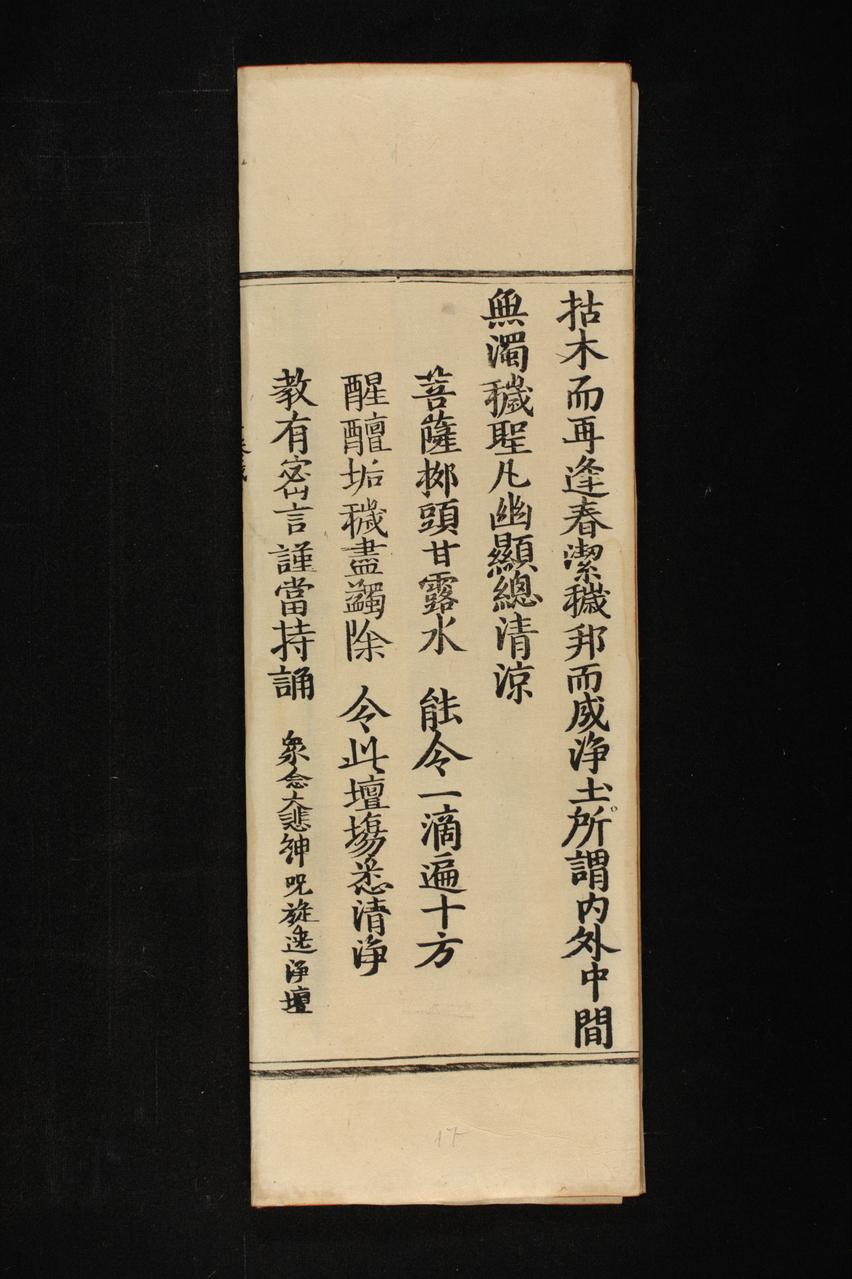 拈木而再逢春潔穢邦而成浄土所謂内外中間
無濁穢聖凡幽顯總清凉
菩薩柳頭甘露水 能令一滴遍十方
腥膻垢穢盡蠲除 令此壇場悉清浄
教有密言謹當持誦 衆念大悲神咒旋遶浄壇
17